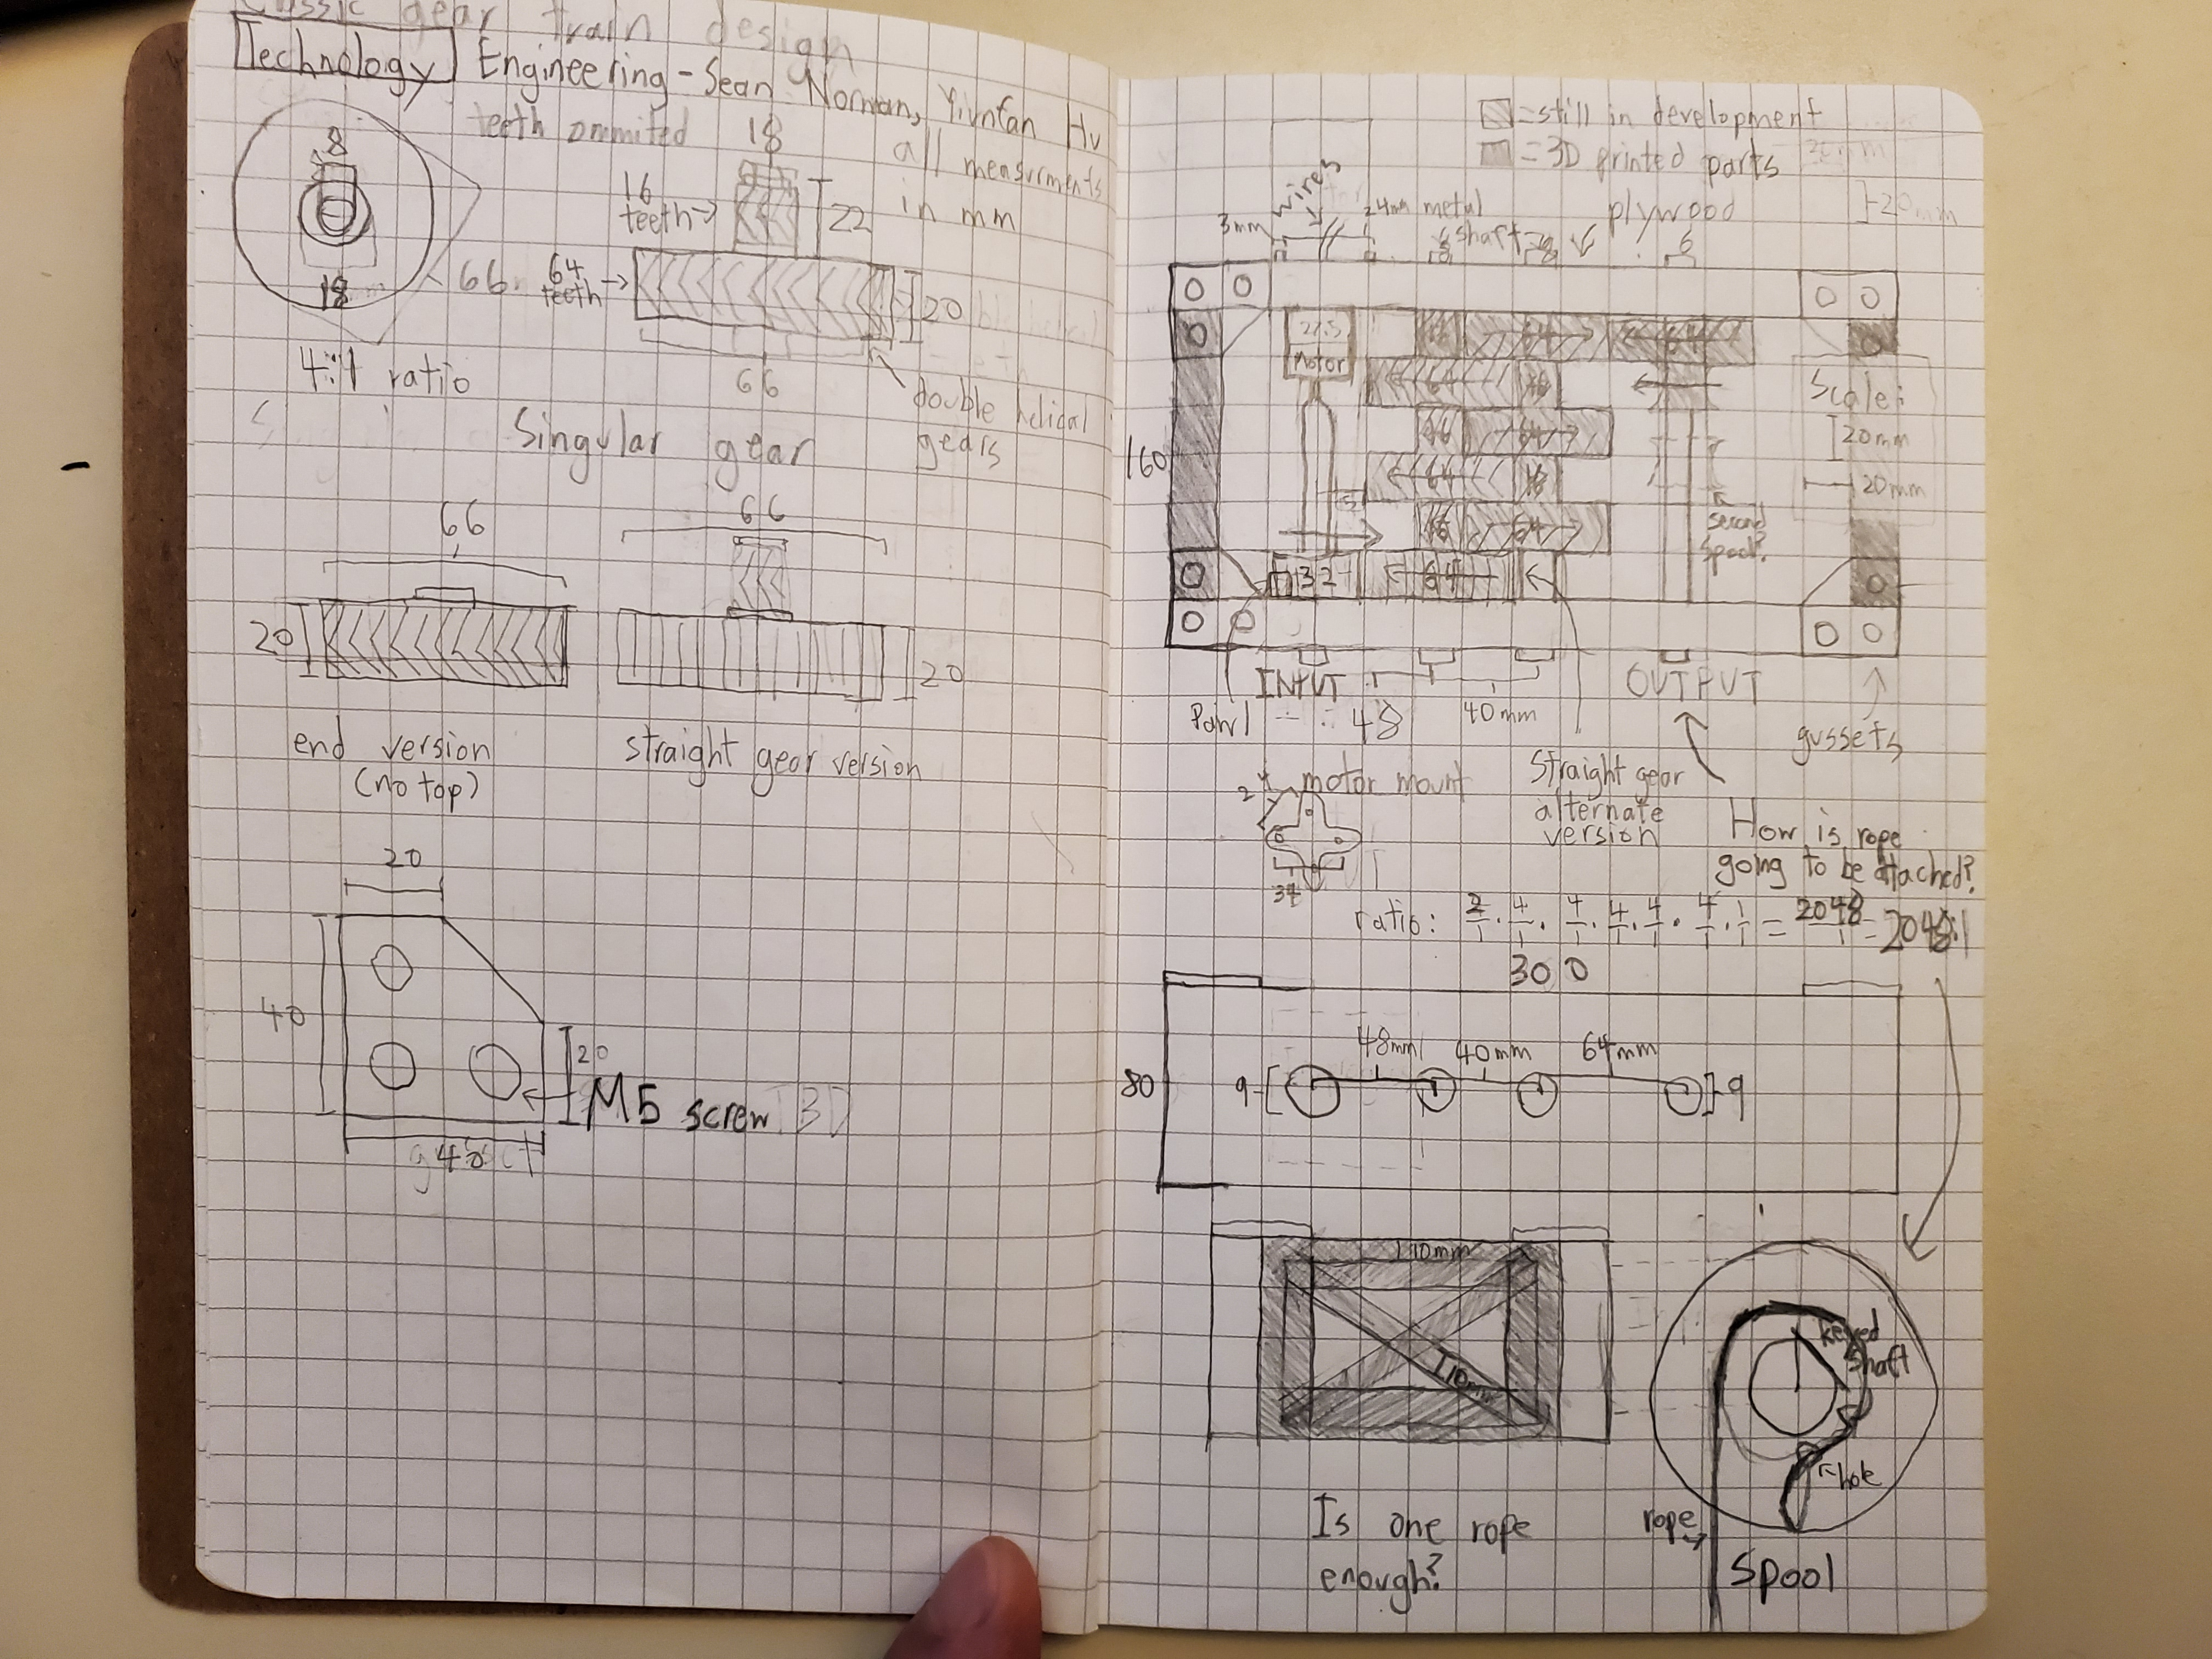 Classic gear train design
Technology Engineering - Sean Norman, Yiunfan Hu
teeth ommited
all measurments
in mm
8
18
66
4:1 ratio
18
16
teeth
22
64
teeth
20
66
double helical
gears
Singular gear
66
20
end version
(no top)
66
20
straight gear version
20
40
20
M5 screw
40
=still in development
=3D printed parts
20mm
wires
3mm
24mm metal
shaft
plywood
6
27.5
Motor
16 64 64
64 16
16 64
64 16
16 64
32 64
160
Scale:
20mm
20mm
second
spool?
INPUT
OUTPUT
Pawl
48
40mm
gussets
motor mount
34
straight gear
alternate
version
How is rope
going to be attached?
ratio: 2/1 · 4/1 · 4/1 · 4/1 · 4/1 · 4/1 · 1/1 = 2048/1 = 2048:1
300
48mm 40mm 64mm
80
9
9
110mm
110mm
keyed
shaft
hole
rope
Spool
Is one rope
enough?